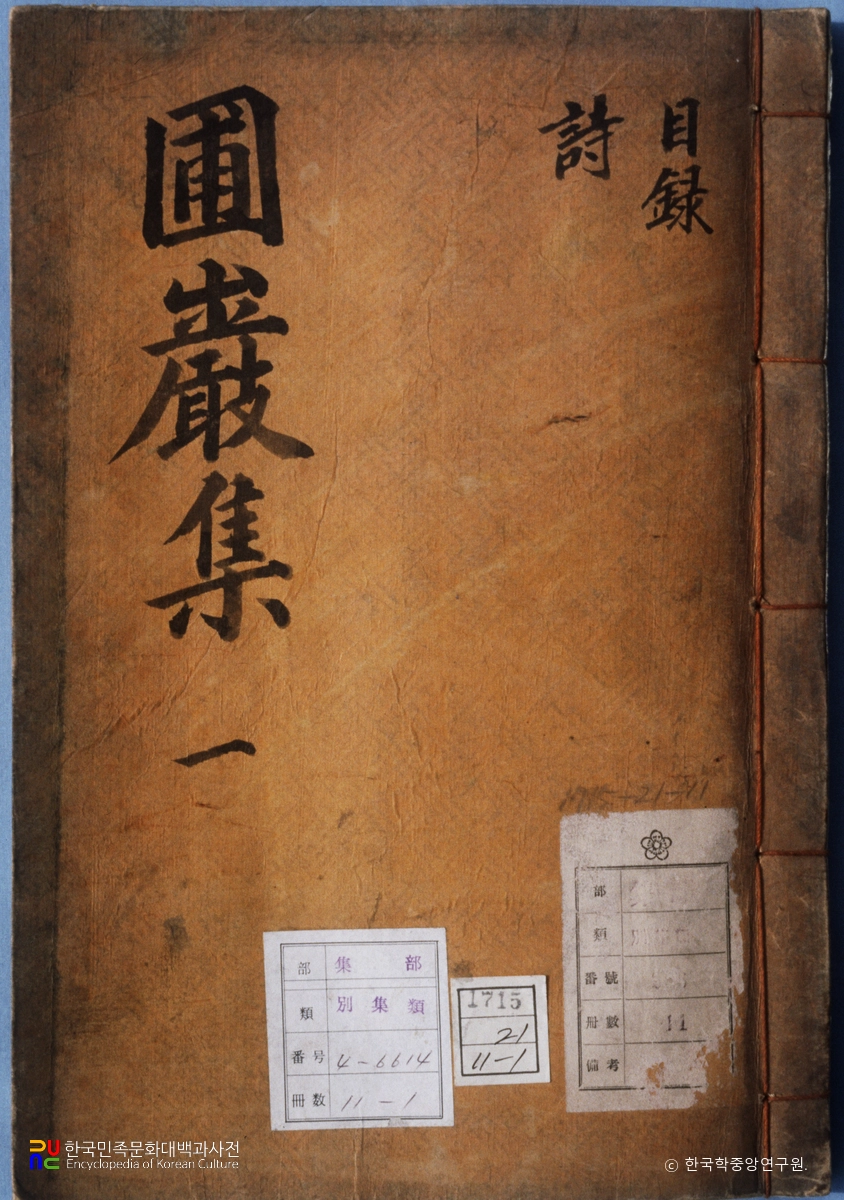 目録
詩
圃巖集
一
部 集部
類 別集類
番号 4-6614
冊数 11-1
1715
21
11-1
部
類
番號
冊數 11
備考
한국민족문화대백과사전
Encyclopedia of Korean Culture
© 한국학중앙연구원.